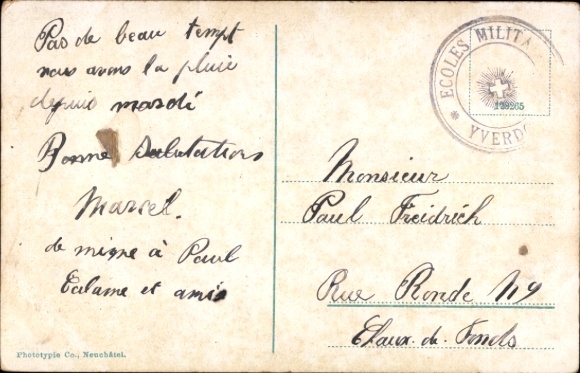 Pas de beau tempt
nous avons la pluie
depuis mardi
Bonne Salutations
Marcel.
de migne à Paul
Calame et amis
Phototypie Co., Neuchâtel.
ECOLES MILITA
YVERDO
129265
Monsieur
Paul Freidrich
Rue Ronde N 9
Chaux-de-Fonds